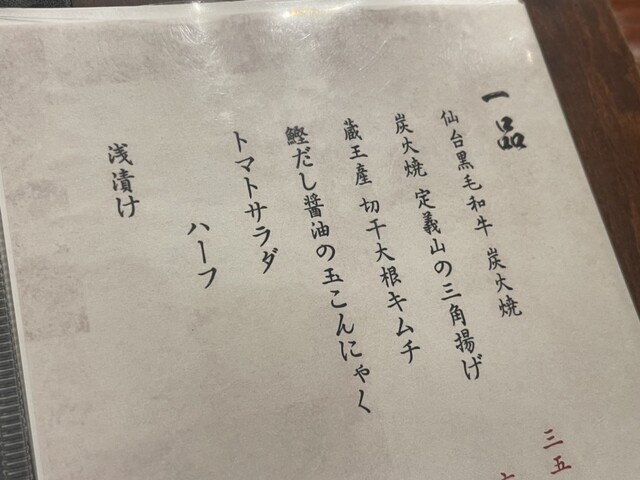 一品
仙台黒毛和牛 炭火焼
炭火焼 定義山の三角揚げ
蔵王産 切干大根キムチ
鰹だし醤油の玉こんにゃく
トマトサラダ
ハーフ
浅漬け
三五